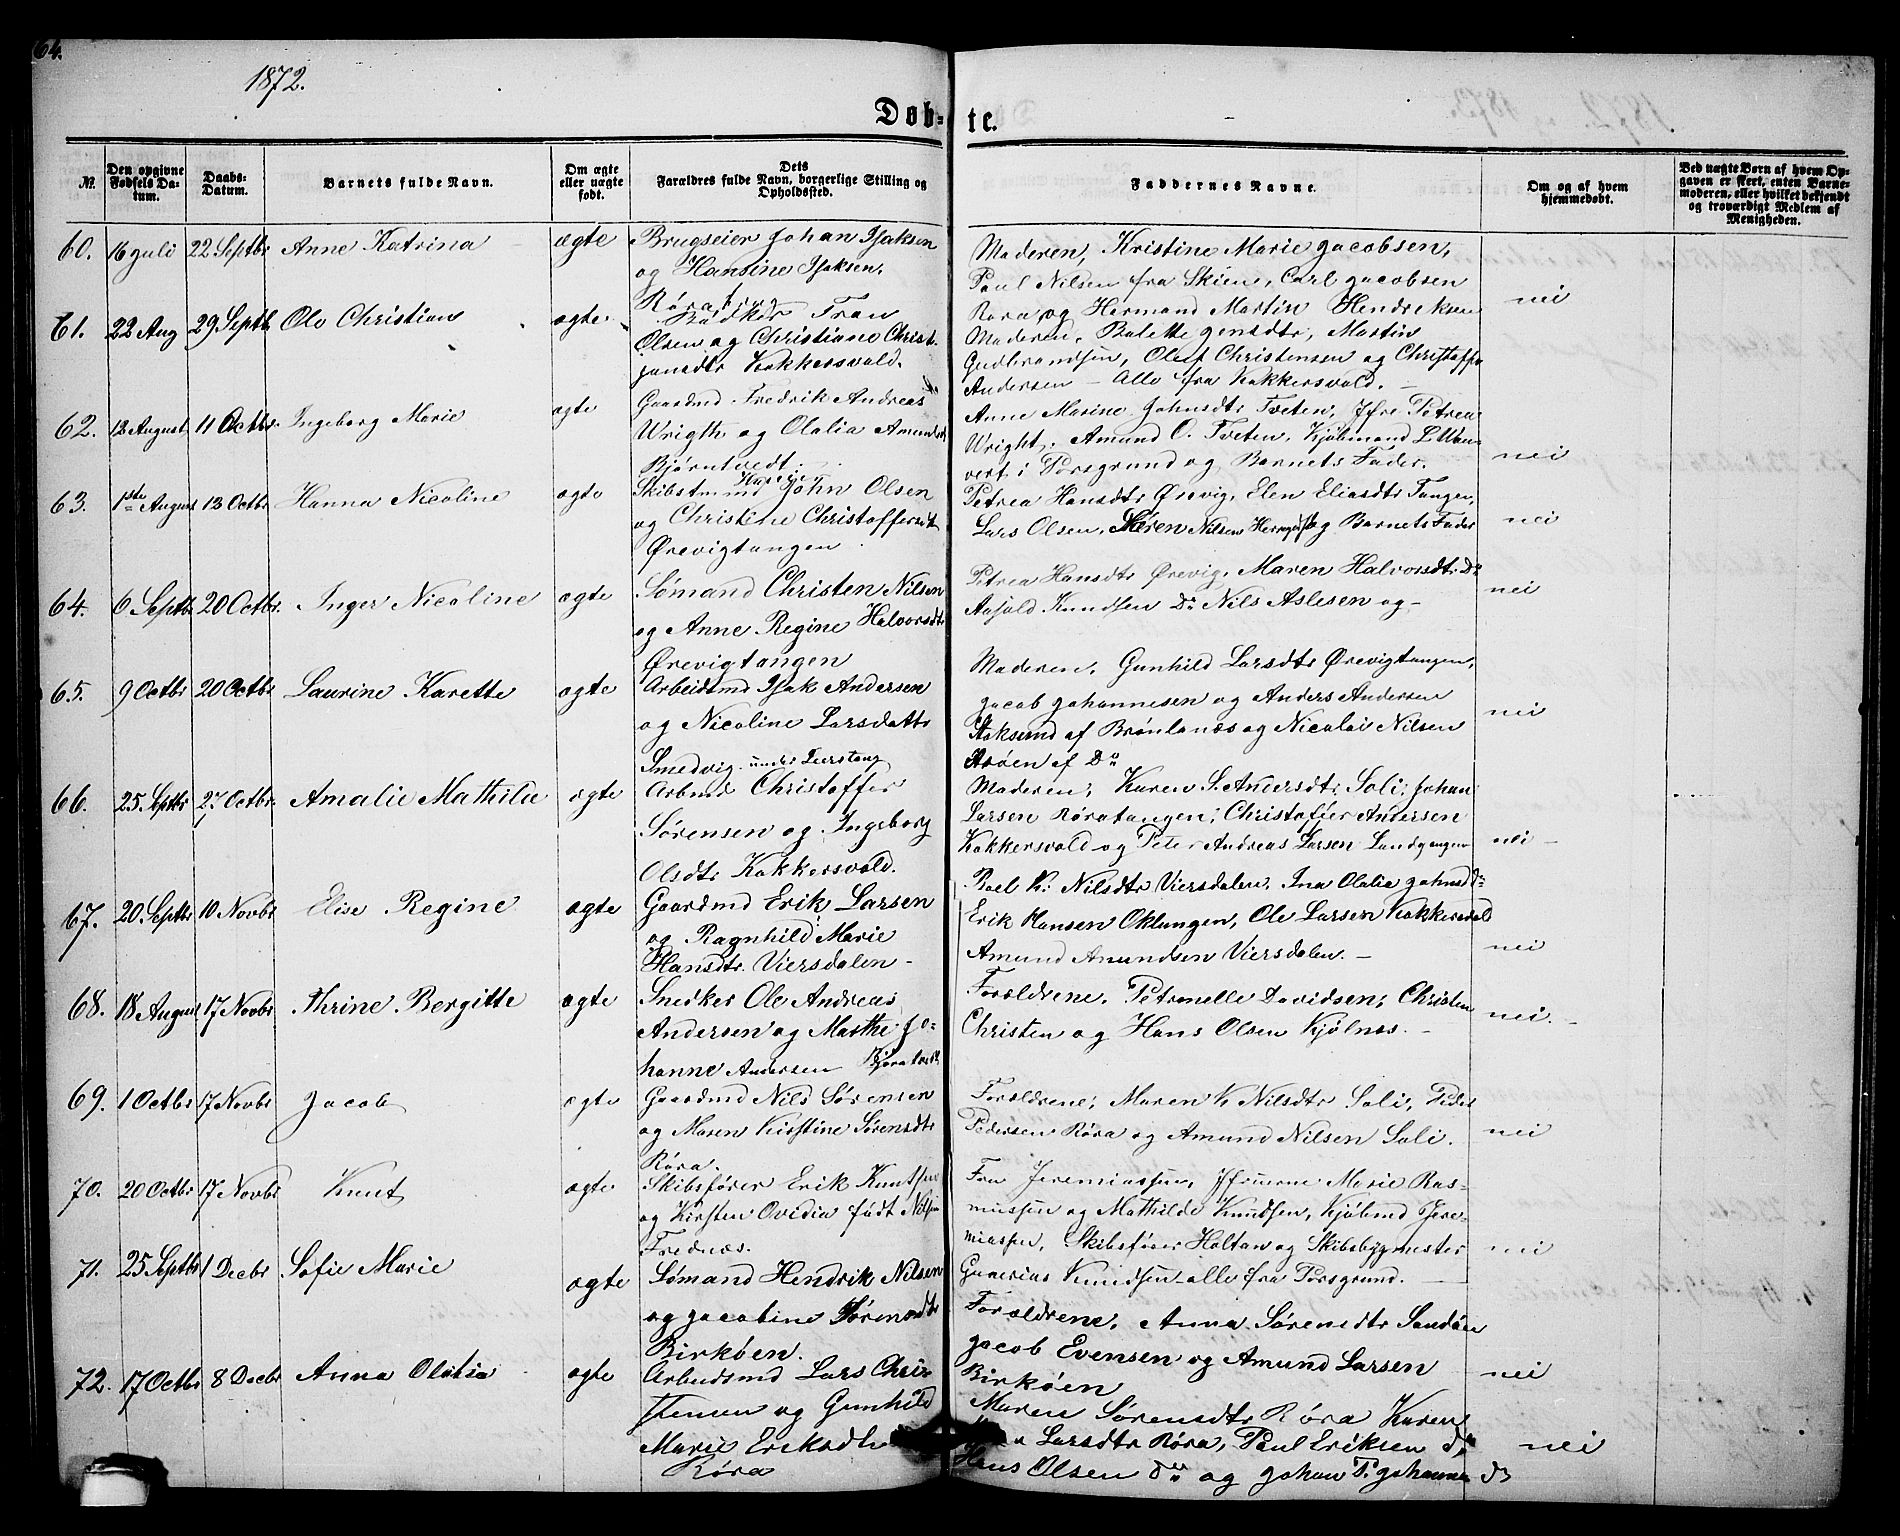 64.
1872.
Døb-
te.
№
Den opgivne Fødsels Datum.
Daabs-Datum.
Barnets fulde Navn.
Om ægte eller uægte født.
Dets Forældres fulde Navn, borgerlige Stilling og Opholdssted.
Faddernes Navne.
Om og af hvem hjemmedøbt.
Ved uægte Børn af hvem Opgaven er skeet, enten Barnemoderen, eller hvilket bekjendt og troværdigt Medlem af Menigheden.
60. 16 Juli 22 Septbr Anne Katrina ægte Brugseier Johan Isaksen
og Hansine Isaksen,
Røra
Maderen, Kristine Marie Jacobsen,
Paul Nilsen fra Skien, Carl Jacobsen
Røra, og Hermand Martin Hendriksen
nei
61. 22 Aug 29 Septb Ole Christian ægte Bødker Fran
Olsen og Christiane Christ-
jansdtr Kokkersvold.
Maderen, Bolette Jensdtr, Martin
Gudbrandsen, Oluf Christensen og Christoffer
Andersen — Alle fra Kokkersvold. —
62. 12 August 11 Octbr. Ingeborg Marie ægte Gaardmd Fredrik Andreas
Wrigth og Olalia Amundsdtr
Bjørntvedt.
Anne Marine Johnsdtr Tveten, Jfre Petrea
Wright, Amund O. Tveten, Kjøbmand L. Wan-
vert i Porsgrund og Barnets Fader.
nei
63. 1ste August 13 Octbr Hanna Nicoline ægte Skibstmrmd John Olsen
og Christine Christoffersdtr
Ørevigtangen
Petrea Hansdtr Ørevig, Elen Eliasdtr Tangen,
Lars Olsen, Søren Nilsen og Barnets Fader
nei
64. 6 Septbr 20 Octbr. Inger Nicoline ægte Sømand Christen Nilsen
og Anne Regine Halvorsdtr
Ørevigtangen
Petrea Hansdtr Ørevig, Maren Halvorsdtr Do
Knudsen Do Nils Aslesen og —
nei
65. 9 Octbr 20 Octbr Laurine Karette ægte Arbeidsmd Isak Andersen
og Nicoline Larsdatter
Smedvig
Maderen, Gunhild Larsdtr Ørevigtangen,
Jacob Johannesen og Anders Andersen
Staksund af Brønlanæs og Nicolai Nilsen
af Do
nei
66. 25. Septbr 27 Octbr. Amalie Mathilde ægte Arbmd Christoffer
Sørensen og Ingeborg
Olsdtr Kokkersvold.
Maderen, Karen S. Andersdtr Soli, Johan
Larsen Røratangen, Christoffer Andersen
Kokkersvold og Peter Andreas Larsen Landgangen
nei —
67. 20. Septbr 10 Novbr Elise Regine ægte Gaardmd Erik Larsen
og Ragnhild Marie
Hansdtr. Viersdalen —
Roel K. Nilsdtr Viersdalen, Ina Olalia Johnsd do
Erik Hansen Oklungen, Ole Larsen Kokkersvold
Amund Amundsen Viersdalen. —
nei
68. 18 August 17 Novbr Thrine Bergitte ægte Snedker Ole Andreas
Andersen og Marthe Jo-
hanne Andersen Bjørntvedt
Forældrene, Petronelle Davidsen, Christen
Christen og Hans Olsen Kjølnes. —
nei. —
69. 1 Octbr 17 Novbr Jacob ægte Gaardmd Nils Sørensen
og Maren Kirstine Sørensdtr
Røra.
Forældrene, Maren K. Nilsdtr Soli, Peder
Pedersen Røra og Amund Nilsen Soli.
nei
70. 20 Octbr 17 Novbr Knut ægte Skibsfører Erik Knutsen
og Kirsten Ovidia født Nilsen
Frednæs.
Fru Jeremiassen, Jfruerne Marie Ras-
mussen og Mathilde Knudsen, Kjøbmd Jere-
miassen, Skibsfører Holtan og Skibsbygmester
Gunerius Knudsen — alle fra Porsgrund. —
nei
71. 25 Septbr 1 Decbr Sofie Marie ægte Sømand Hendrik Nilsen
og Jacobine Sørensdtr
Birkøen.
Forældrene, Anna Sørensdtr Sandøen
Jacob Evensen og Amund Larsen
Birkøen
nei
72. 17 Octbr 8 Decbr Anna Olatia ægte Arbeidsmd Lars Chri-
stensen og Gunhild
Marie Eriksdtr
Røra
Maren Sørensdtr Røra, Karen
Larsdtr Røra, Paul Eriksen do
Hans Olsen do og Johan P. Johannes do
nei